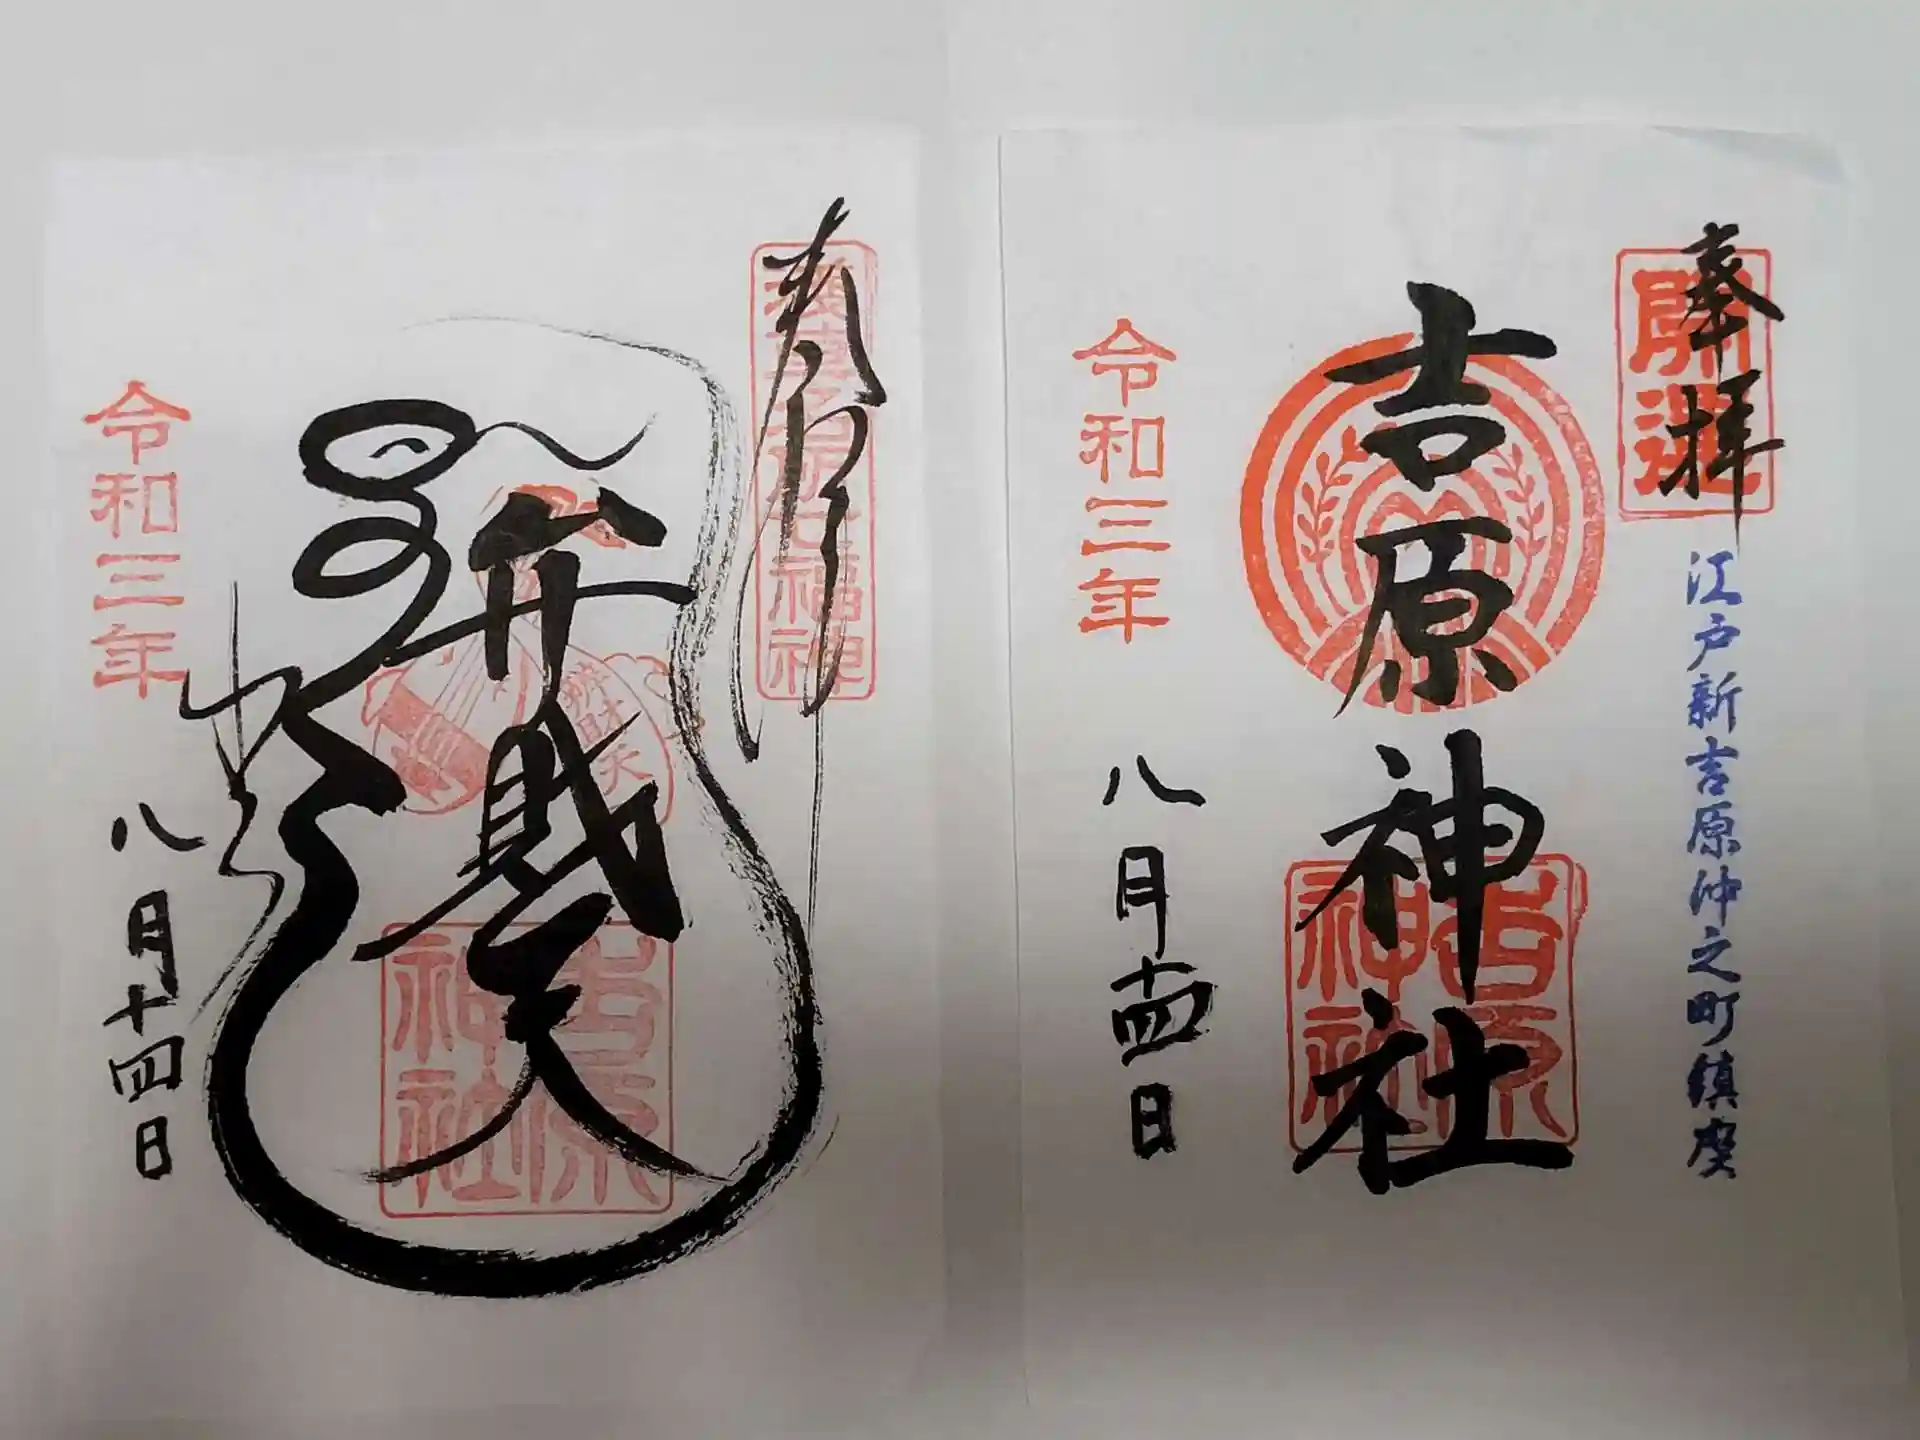 奉拝
開運
江戸新吉原仲之町鎮座
吉原神社
吉原神社
令和三年
八月十四日
奉拝
浅草名所七福神
弁財天
辨財天
吉原神社
令和三年
八月十四日